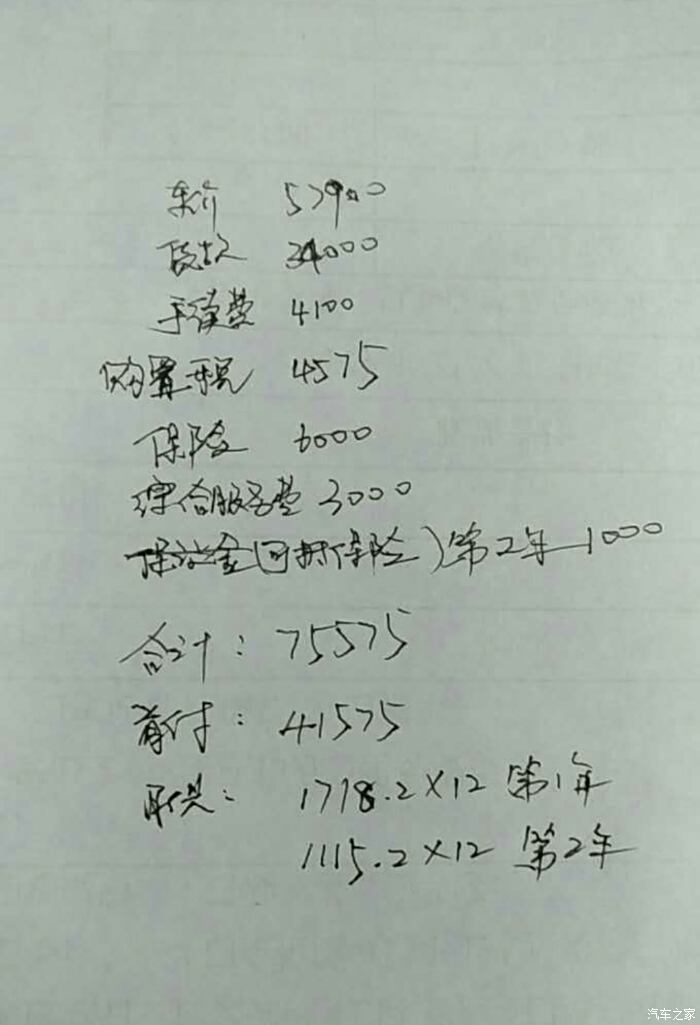 车价 57900
贷款 34000
手续费 4100
购置税 4575
保险 6000
综合服务费 3000
保证金(回来保险)第2年 1000
合计: 75575
首付: 41575
月供: 1718.2×12 第1年
1115.2×12 第2年
汽车之家